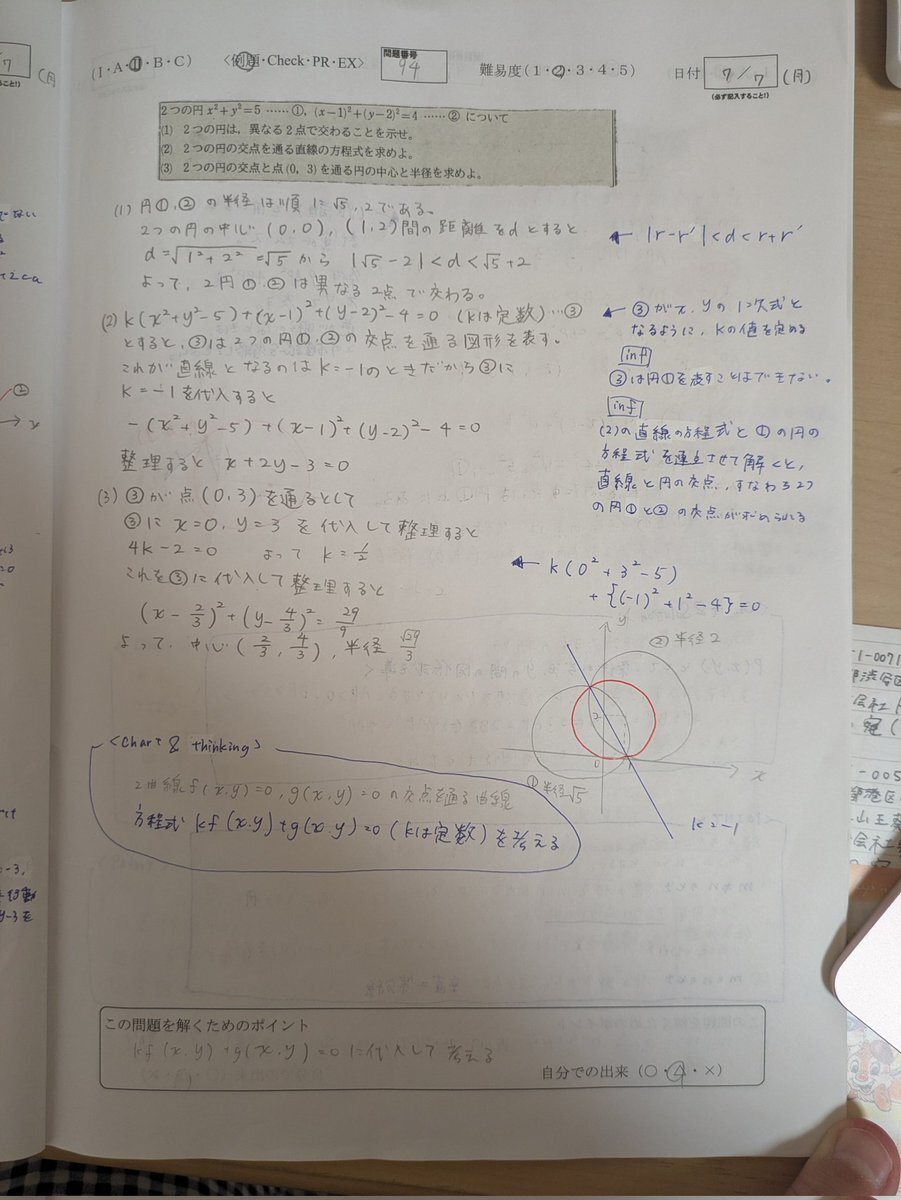 (I・A・Ⅱ・B・C) <例題・Check・PR・EX> 問題番号 94 難易度(1・2・3・4・5) 日付 7/7 (月)
(必ず記入すること!)
2つの円 x²+y²=5 ……①, (x-1)²+(y-2)²=4 ……② について
(1) 2つの円は, 異なる2点で交わることを示せ。
(2) 2つの円の交点を通る直線の方程式を求めよ。
(3) 2つの円の交点と点(0, 3)を通る円の中心と半径を求めよ。
(1) 円①,②の半径は順に√5, 2である。
2つの円の中心(0,0), (1,2)間の距離をdとすると
d=√1²+2²=√5から |√5-2|<d<√5+2
よって, 2円①,②は異なる2点で交わる。
← |r-r'|<d<r+r'
(2) k(x²+y²-5)+(x-1)²+(y-2)²-4=0 (kは定数)…③
とすると, ③は2つの円①,②の交点を通る図形を表す。
これが直線となるのはk=-1のときだから③に
k=-1を代入すると
-(x²+y²-5)+(x-1)²+(y-2)²-4=0
整理すると x+2y-3=0
← ③がx,yの1次式と
なるように, kの値を定める
inf
③は円①を表すことはできない。
inf
(2)の直線の方程式と①の円の
方程式を連立させて解くと,
直線と円の交点, すなわち2つ
の円①と②の交点が求められる
(3) ③が点(0,3)を通るとして
③にx=0, y=3を代入して整理すると
4k-2=0 よって k=1/2
これを③に代入して整理すると
(x-2/3)²+(y-4/3)²=29/9
よって, 中心(2/3, 4/3), 半径 √29/3
← k(0²+3²-5)
+{(-1)²+1²-4}=0
y
② 半径2
2
0
1
x
① 半径√5
k=-1
<chart & thinking>
2曲線f(x,y)=0, g(x,y)=0の交点を通る曲線
方程式 kf(x,y)+g(x,y)=0 (kは定数)を考える
この問題を解くためのポイント
kf(x,y)+g(x,y)=0に代入して考える
自分での出来 (○・△・×)